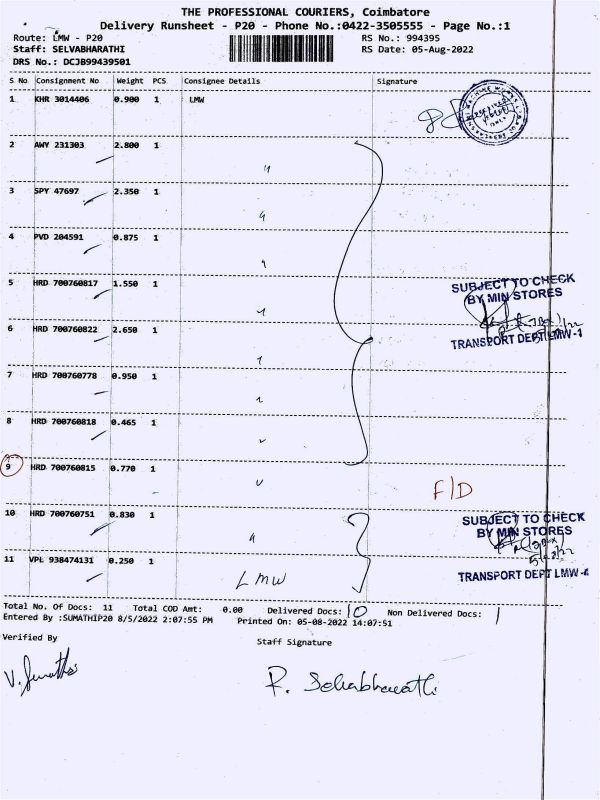 THE PROFESSIONAL COURIERS, Coimbatore
Delivery Runsheet - P20 - Phone No.:0422-3505555 - Page No.:1
Route: LMW - P20 RS No.: 994395
Staff: SELVABHARATHI RS Date: 05-Aug-2022
DRS No.: DCJB99439501
S No Consignment No Weight PCS Consignee Details Signature
1 KHR 3014406 0.900 1 LMW
2 AWY 231303 2.800 1 "
3 SPY 47697 2.350 1 "
4 PVD 204591 0.875 1 "
5 HRD 700760817 1.550 1 "
SUBJECT TO CHECK
BY MIN STORES
6 HRD 700760822 2.650 1 "
TRANSPORT DEPT LMW-1
7 HRD 700760778 0.950 1 "
8 HRD 700760818 0.465 1 "
9 HRD 700760815 0.770 1 "
F/D
10 HRD 700760751 0.830 1 "
SUBJECT TO CHECK
BY MIN STORES
11 VPL 938474131 0.250 1 LMW
TRANSPORT DEPT LMW-4
Total No. Of Docs: 11 Total COD Amt: 0.00 Delivered Docs: 10 Non Delivered Docs: 1
Entered By :SUMATHIP20 8/5/2022 2:07:55 PM Printed On: 05-08-2022 14:07:51
Verified By Staff Signature
R. Selvabharathi